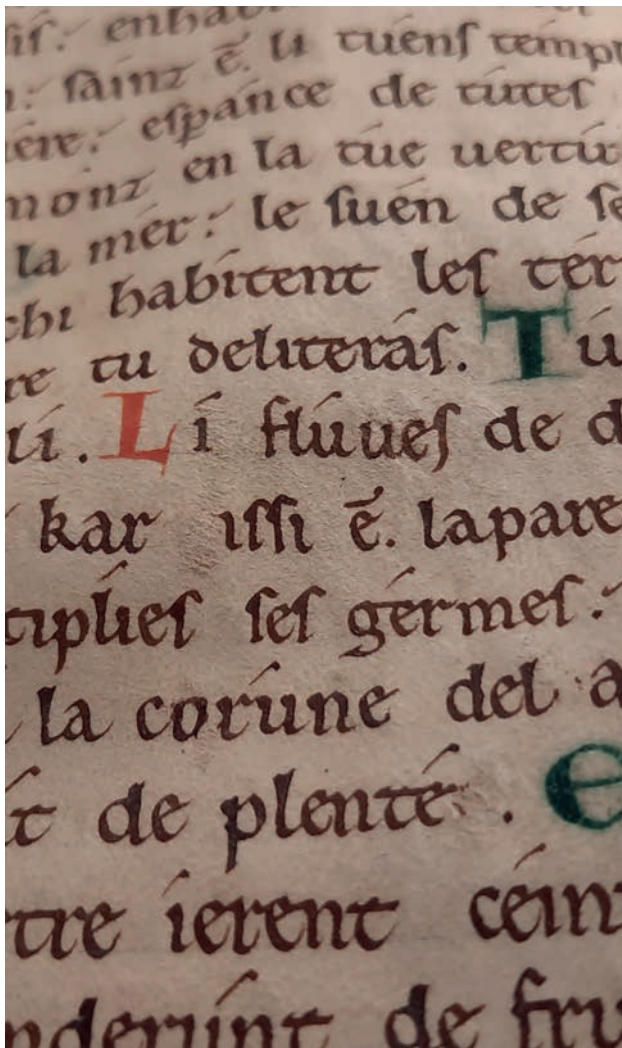 iſ: enhab
n: ſainz ē. li tuenſ templ
iére: eſpance de túteſ
monz en la túe uertú
la mér: le ſuén de ſe
chi habítent leſ tér
re tu deliteráſ. Tú
lí. Lí flúueſ de d
kar iſſi ē. lapare
tiplieſ ſeſ gérmeſ:
la corúne del a
ít de plenté. E
tre íerent céin
nderúnt de fru